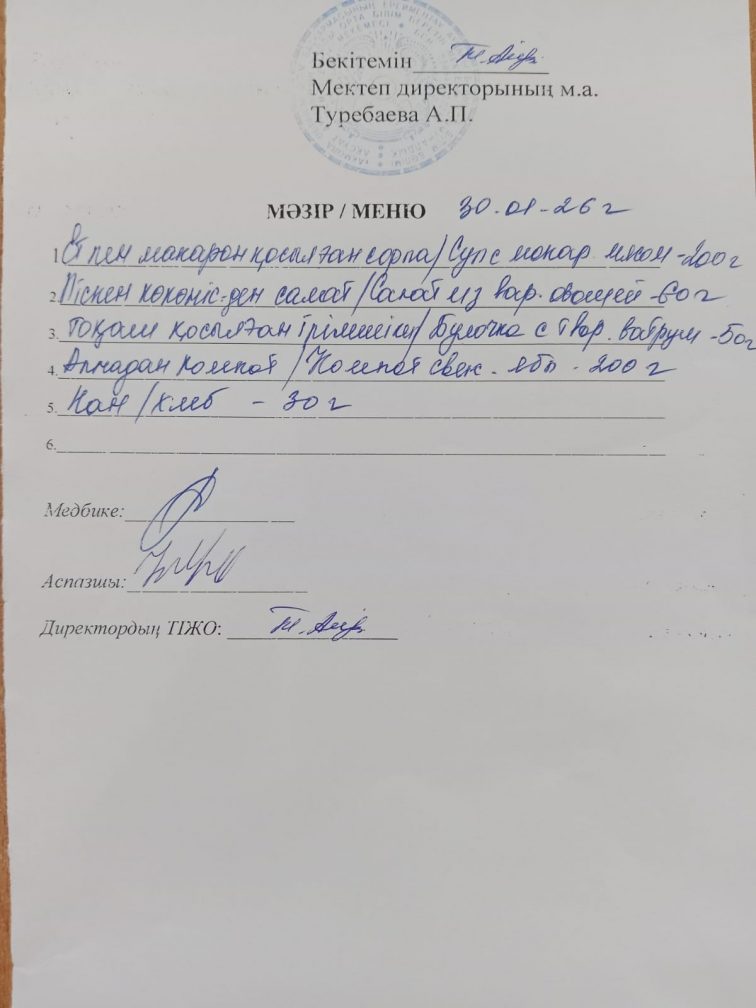 Бекітемін
Мектеп директорының м.а.
Туребаева А.П.
МӘЗІР / МЕНЮ 30.01-26г
1. Ет пен макарон қосылған сорпа/Суп с макар. мясом -200г
2. Піскен көкөніс-ден салат/Салат из вар. овощей -60г
3. Тоқаш қосылған ірімшік/Булочка с твор. ватруш -50г
4. Алмадан компот /Компот свеж. ябл. 200г
5. Нан/хлеб - 30г
6.
Медбике:
Аспазшы:
Директордың ТІЖО: